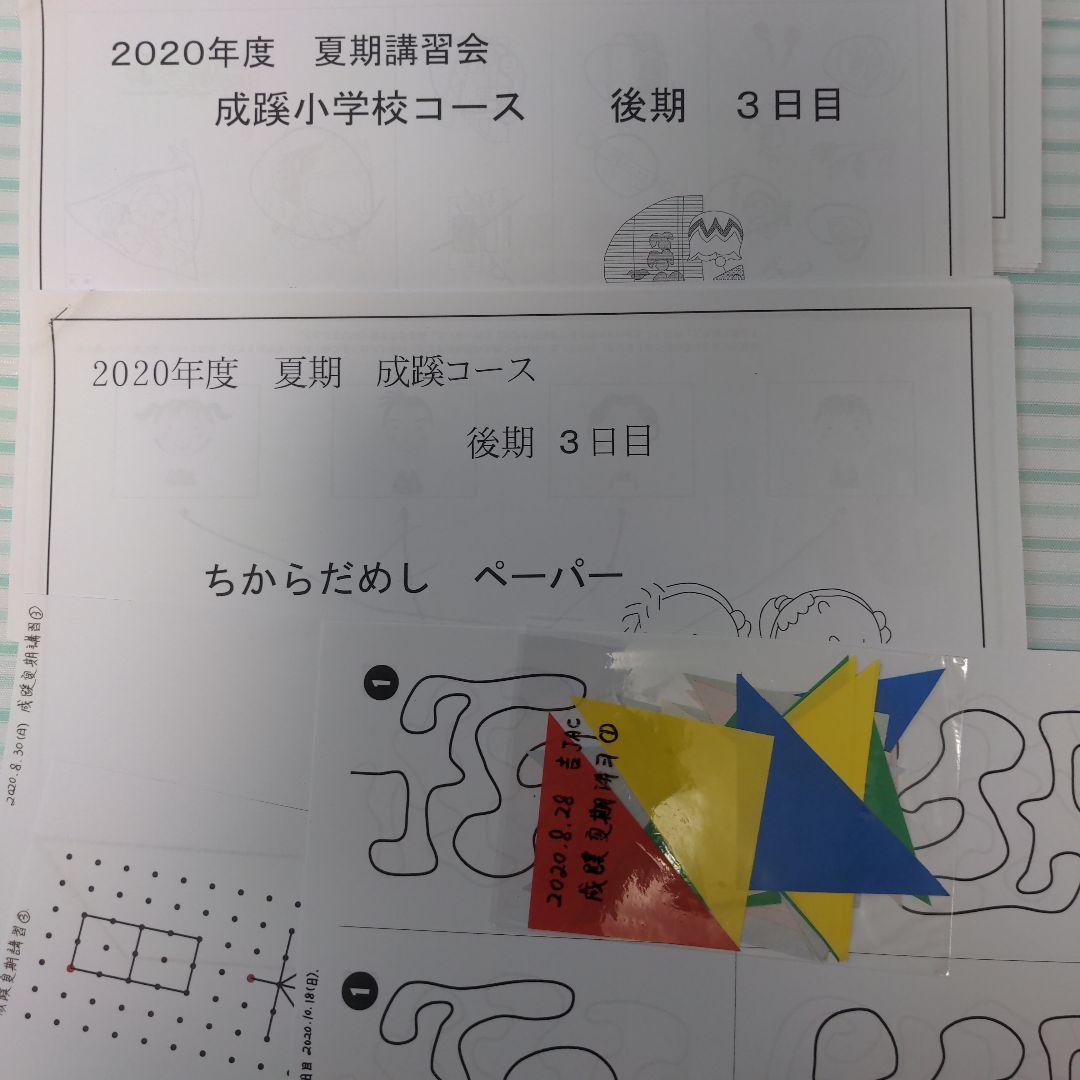 2020年度 夏期講習会
成蹊小学校コース 後期 3日目
2020年度 夏期 成蹊コース
後期 3日目
ちからだめし ペーパー
2020.8.30(日) 成蹊夏期講習③
1
2020.8.28 吉JAC
成蹊夏期講習①
成蹊夏期講習③
1
日目 2020.10.18(日).